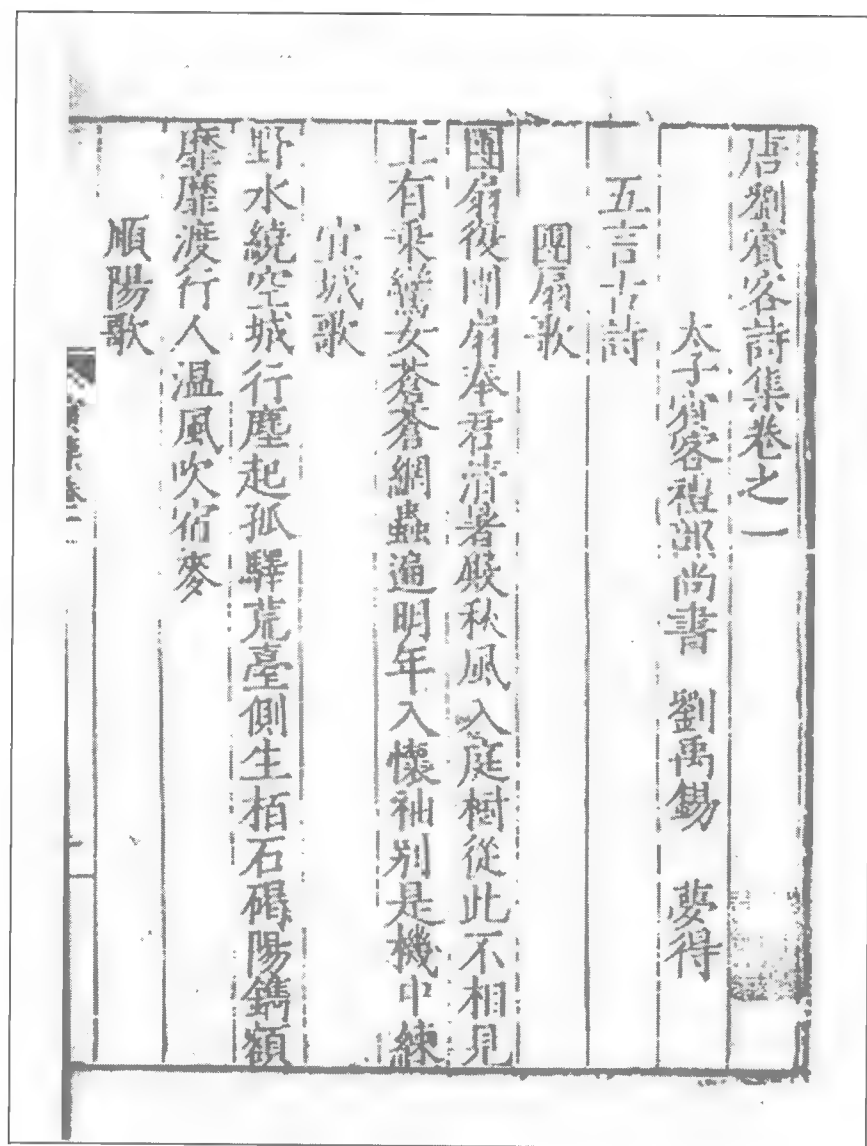 唐劉賓客詩集卷之一
太子賓客禮部尚書　劉禹錫　夢得
五言古詩
團扇歌
團扇復團扇奉君清暑殿秋風入庭樹從此不相見
上有乘鸞女蒼蒼網蟲遍明年入懷袖別是機中練
宜城歌
野水繞空城行塵起孤驛荒臺側生栢石碣陽鐫額
靡靡渡行人温風吹宿麥
順陽歌